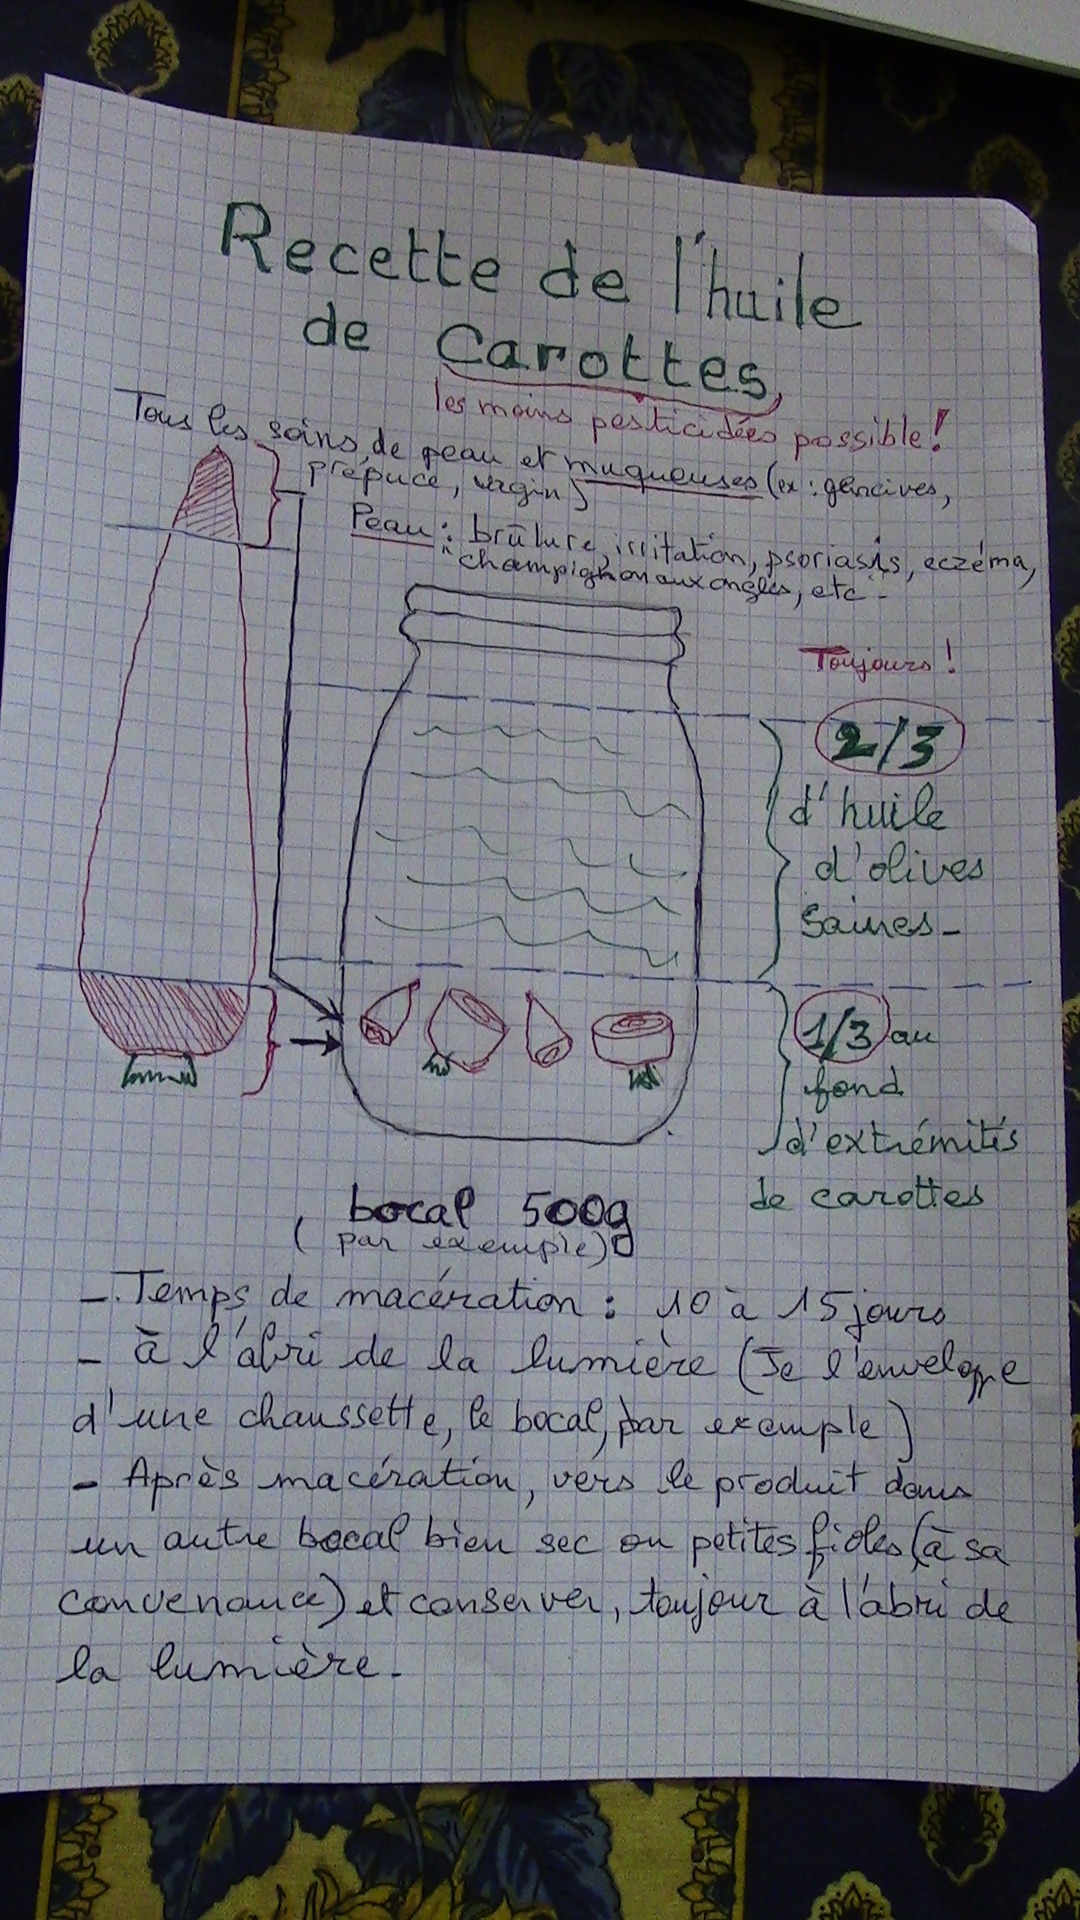 Recette de l'huile
de Carottes
les moins pesticidées possible!
Tous les soins de peau et muqueuses (ex : gencives,
prépuce, vagin)
Peau : brûlure, irritation, psoriasis, eczéma,
"champignon aux ongles, etc -
Toujours !
2/3
d'huile
d'olives
saines -
1/3 au
fond
d'extrémités
de carottes
bocal 500g
( par exemple)
- Temps de macération : 10 à 15 jours
- à l'abri de la lumière (Je l'enveloppe
d'une chaussette, le bocal, par exemple)
- Après macération, vers le produit dans
un autre bocal bien sec ou petites fioles (à sa
convenance) et conserver, toujour à l'abri de
la lumière -